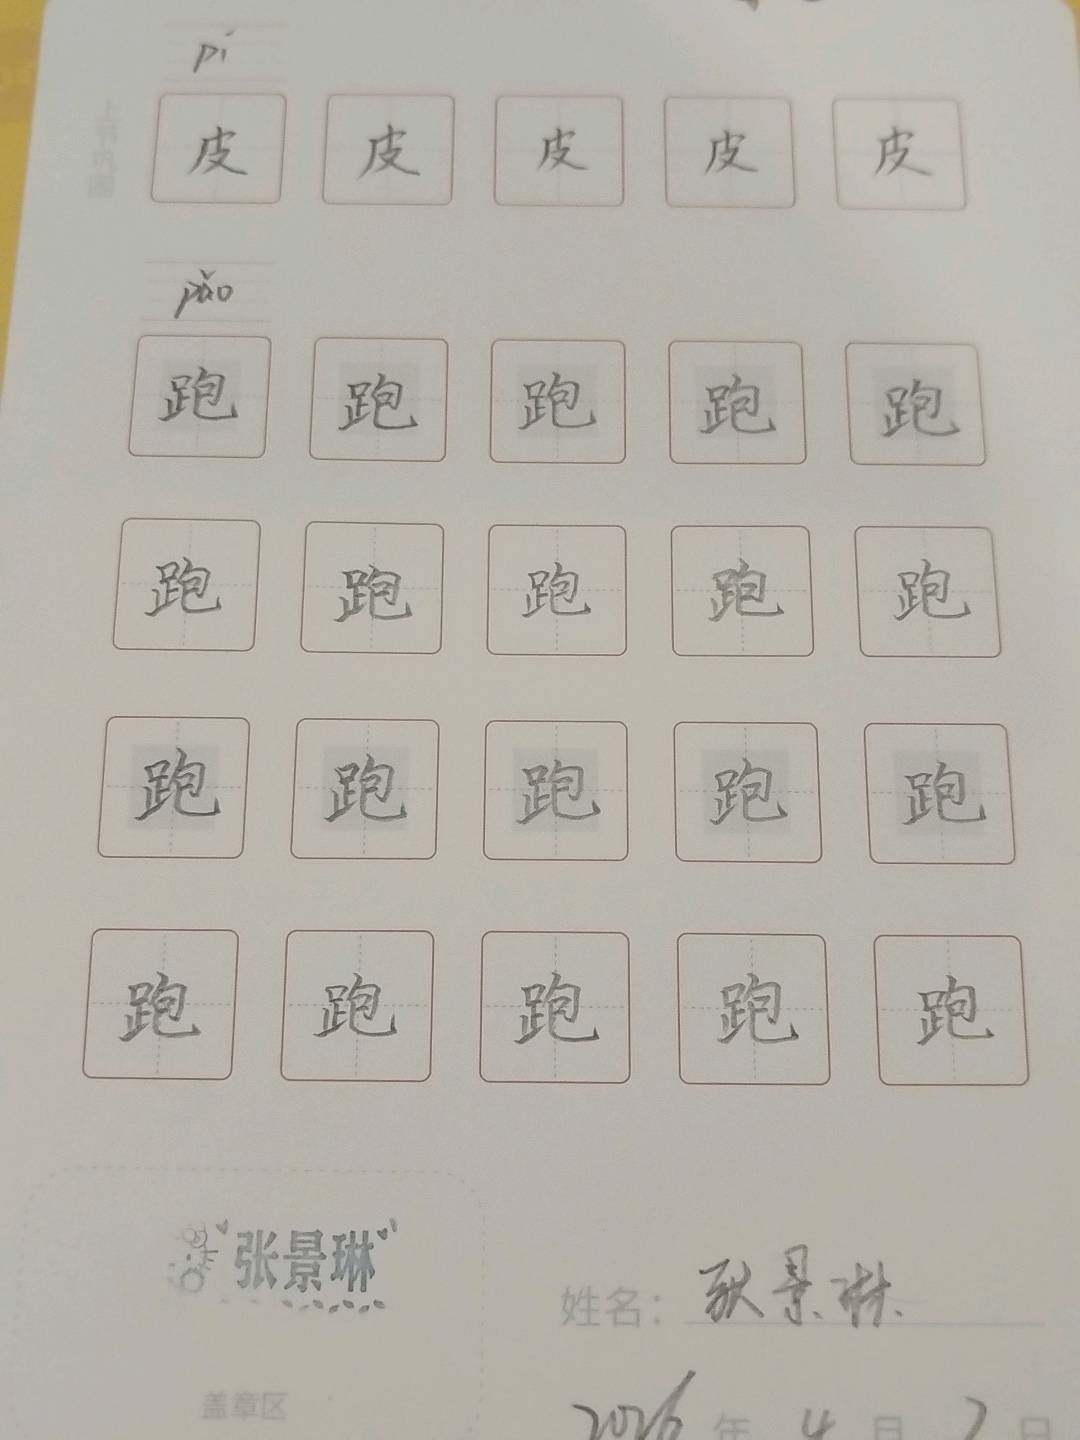 pí
皮 皮 皮 皮 皮
pǎo
跑 跑 跑 跑 跑
跑 跑 跑 跑 跑
跑 跑 跑 跑 跑
跑 跑 跑 跑 跑
张景琳
姓名： 景琳
盖章区
2026年4月2日